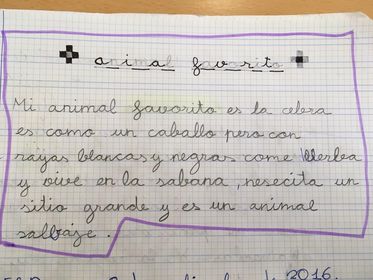 animal favorito
Mi animal favorito es la cebra
es como un caballo pero con
rayas blancas y negras come llerba
y vive en la sabana, nesecita un
sitio grande y es un animal
salbaje.
2016.